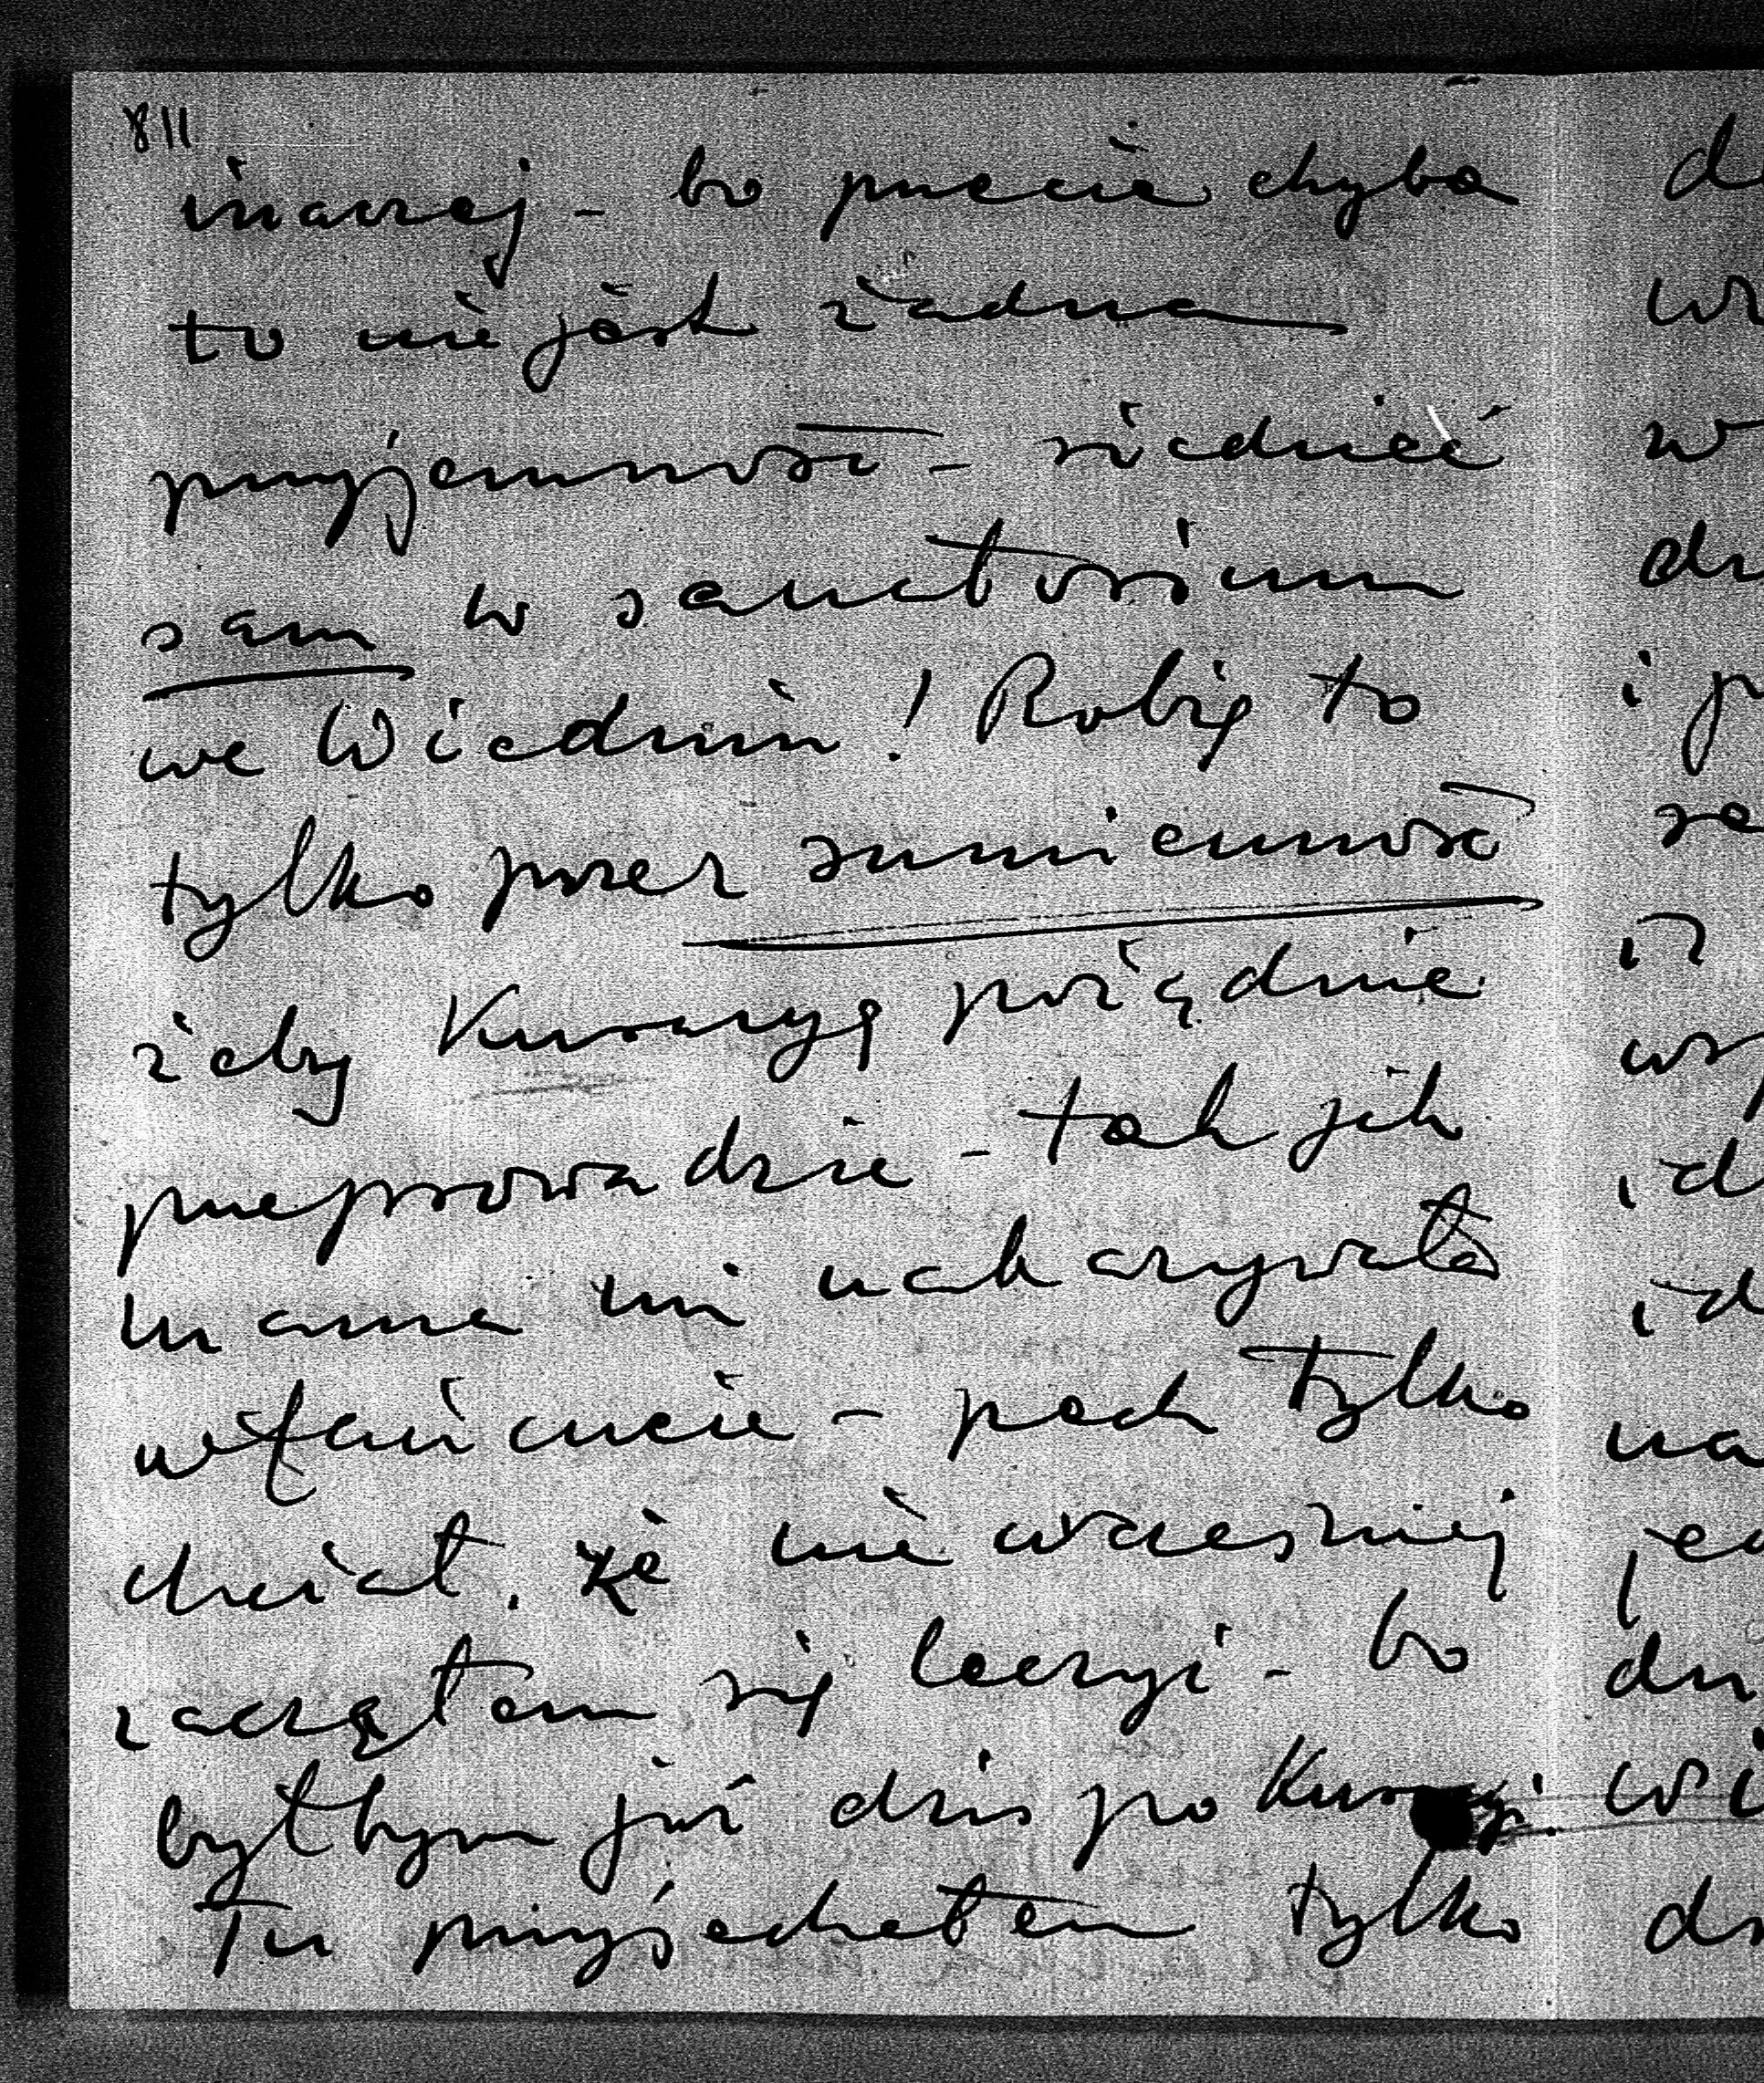 811
inaczej - bo przecie chyba
to nie jest żadna
przyjemność - siedzieć
sam w sanatorium
we Wiedniu! Robię to
tylko przez sumienność
żeby Kuracyę porządnie
przeprowadzić - tak jak
Mama mi nakazywała
w Łańcucie - pech tylko
chciał. że nie wcześniej
zacząłem się leczyć - bo
byłbym już dziś po Kuracyi.
Tu przyjechałem tylko